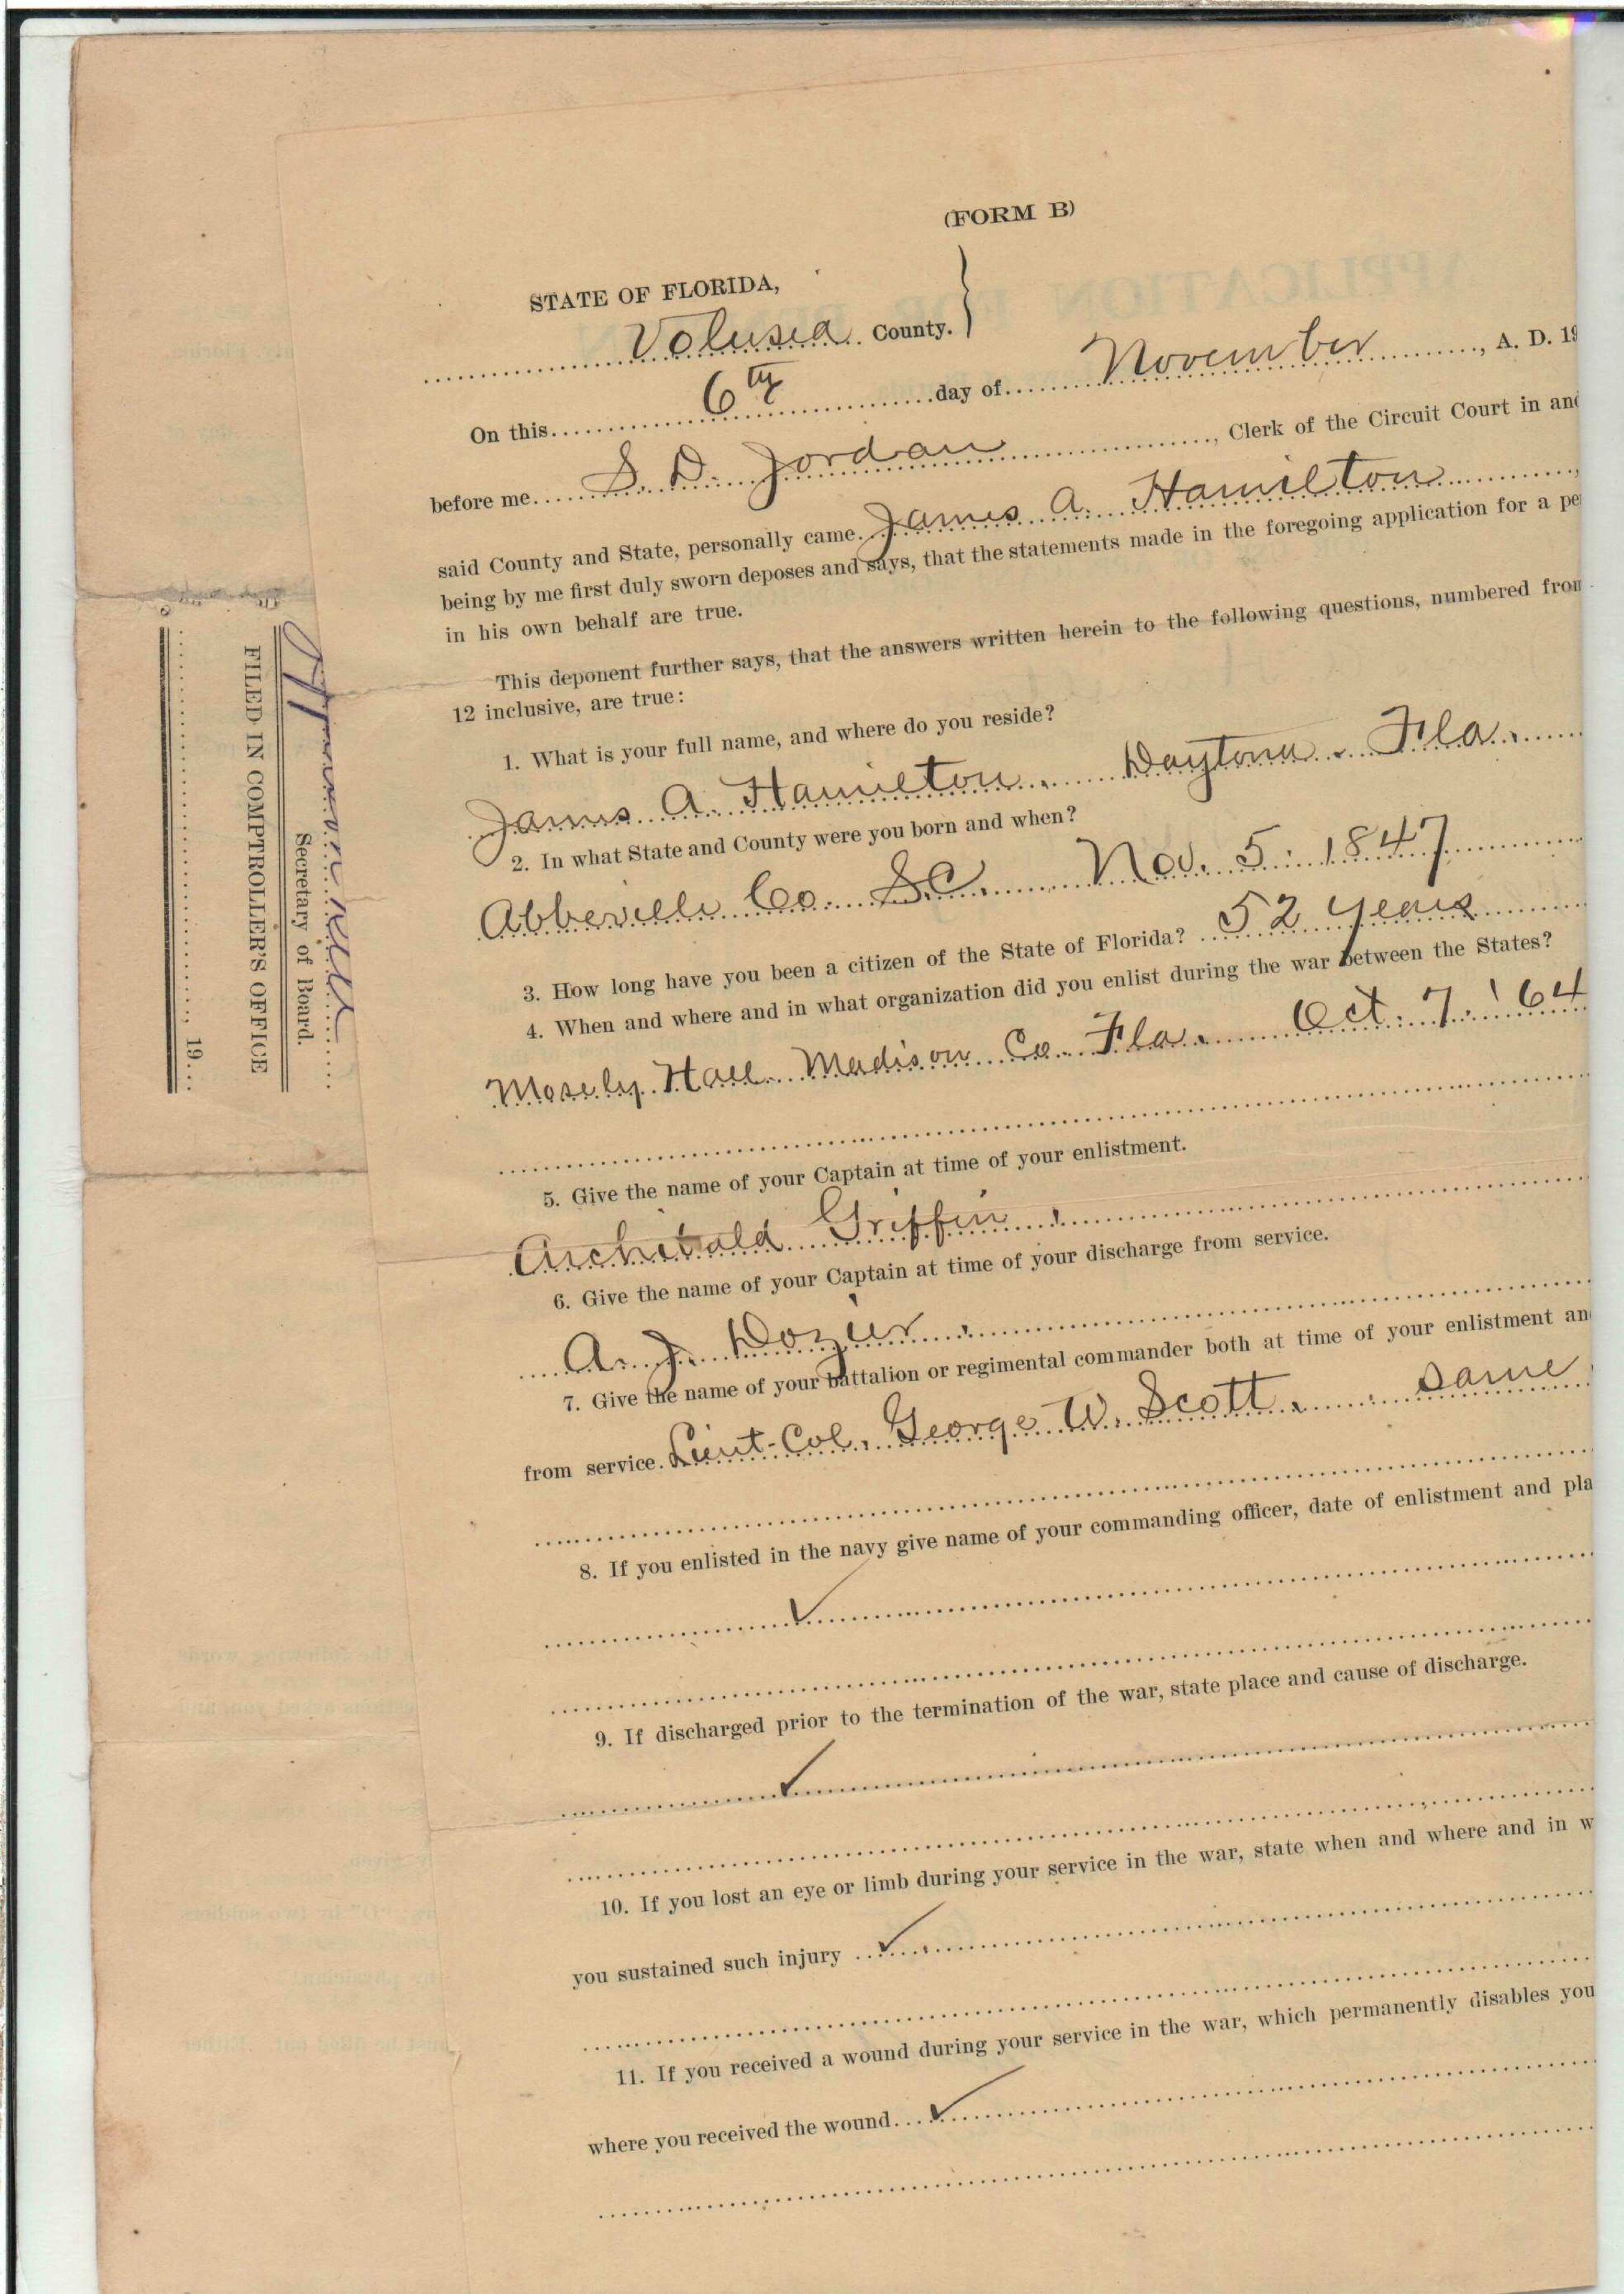 (FORM B)
STATE OF FLORIDA,
Volusia County.
On this 6th day of November, A. D. 19
before me S. D. Jordan, Clerk of the Circuit Court in and
said County and State, personally came James A. Hamilton,
being by me first duly sworn deposes and says, that the statements made in the foregoing application for a pe
in his own behalf are true.
This deponent further says, that the answers written herein to the following questions, numbered from
12 inclusive, are true:
1. What is your full name, and where do you reside?
James A. Hamilton. Daytona. Fla.
2. In what State and County were you born and when?
Abbeville Co. S.C. Nov. 5. 1847
3. How long have you been a citizen of the State of Florida? 52 years
4. When and where and in what organization did you enlist during the war between the States?
Mosely Hall Madison Co. Fla. Oct. 7. '64
5. Give the name of your Captain at time of your enlistment.
Archibald Griffin.
6. Give the name of your Captain at time of your discharge from service.
A. J. Dozier.
7. Give the name of your battalion or regimental commander both at time of your enlistment an
from service. Lieut-Col. George W. Scott. same
8. If you enlisted in the navy give name of your commanding officer, date of enlistment and pla
9. If discharged prior to the termination of the war, state place and cause of discharge.
10. If you lost an eye or limb during your service in the war, state when and where and in w
you sustained such injury
11. If you received a wound during your service in the war, which permanently disables you
where you received the wound
Secretary of Board.
FILED IN COMPTROLLER'S OFFICE
, 19